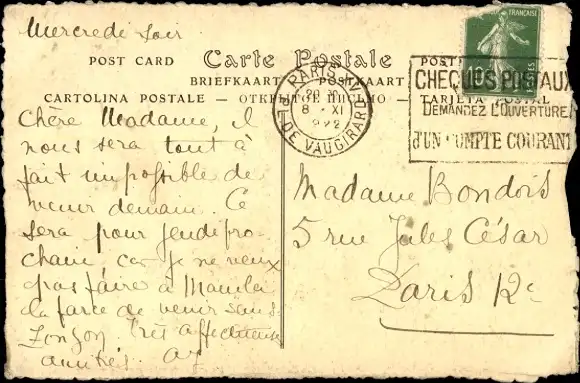 Mercredi soir
Carte Postale
POST CARD
POST
BRIEFKAART POSTKAART
CARTOLINA POSTALE — ОТКРЫТОЕ ПИСЬМО — TARJETA POSTAL
PARIS V
20
8 · XI
1922
R. DE VAUGIRARD
FRANÇAISE
CHEQUES POSTAUX
DEMANDEZ L'OUVERTURE
d'UN COMPTE COURANT
Chère Madame, il
nous sera tout à
fait impossible de
venir demain. Ce
sera pour jeudi pro-
chain, car je ne veux
pas faire à Manila
la farce de venir sans
Zonzon Très affectueuses
amitiés. AJ
Madame Bondois
5 rue Jules César
Paris 12e